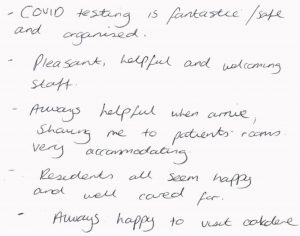 - COVID testing is fantastic /safe
and organised.
- Pleasant, helpful and welcoming
staff.
- Always helpful when arrive,
showing me to patients rooms.
very accommodating.
- Residents all seem happy
and well cared for.
- Always happy to visit oakdene